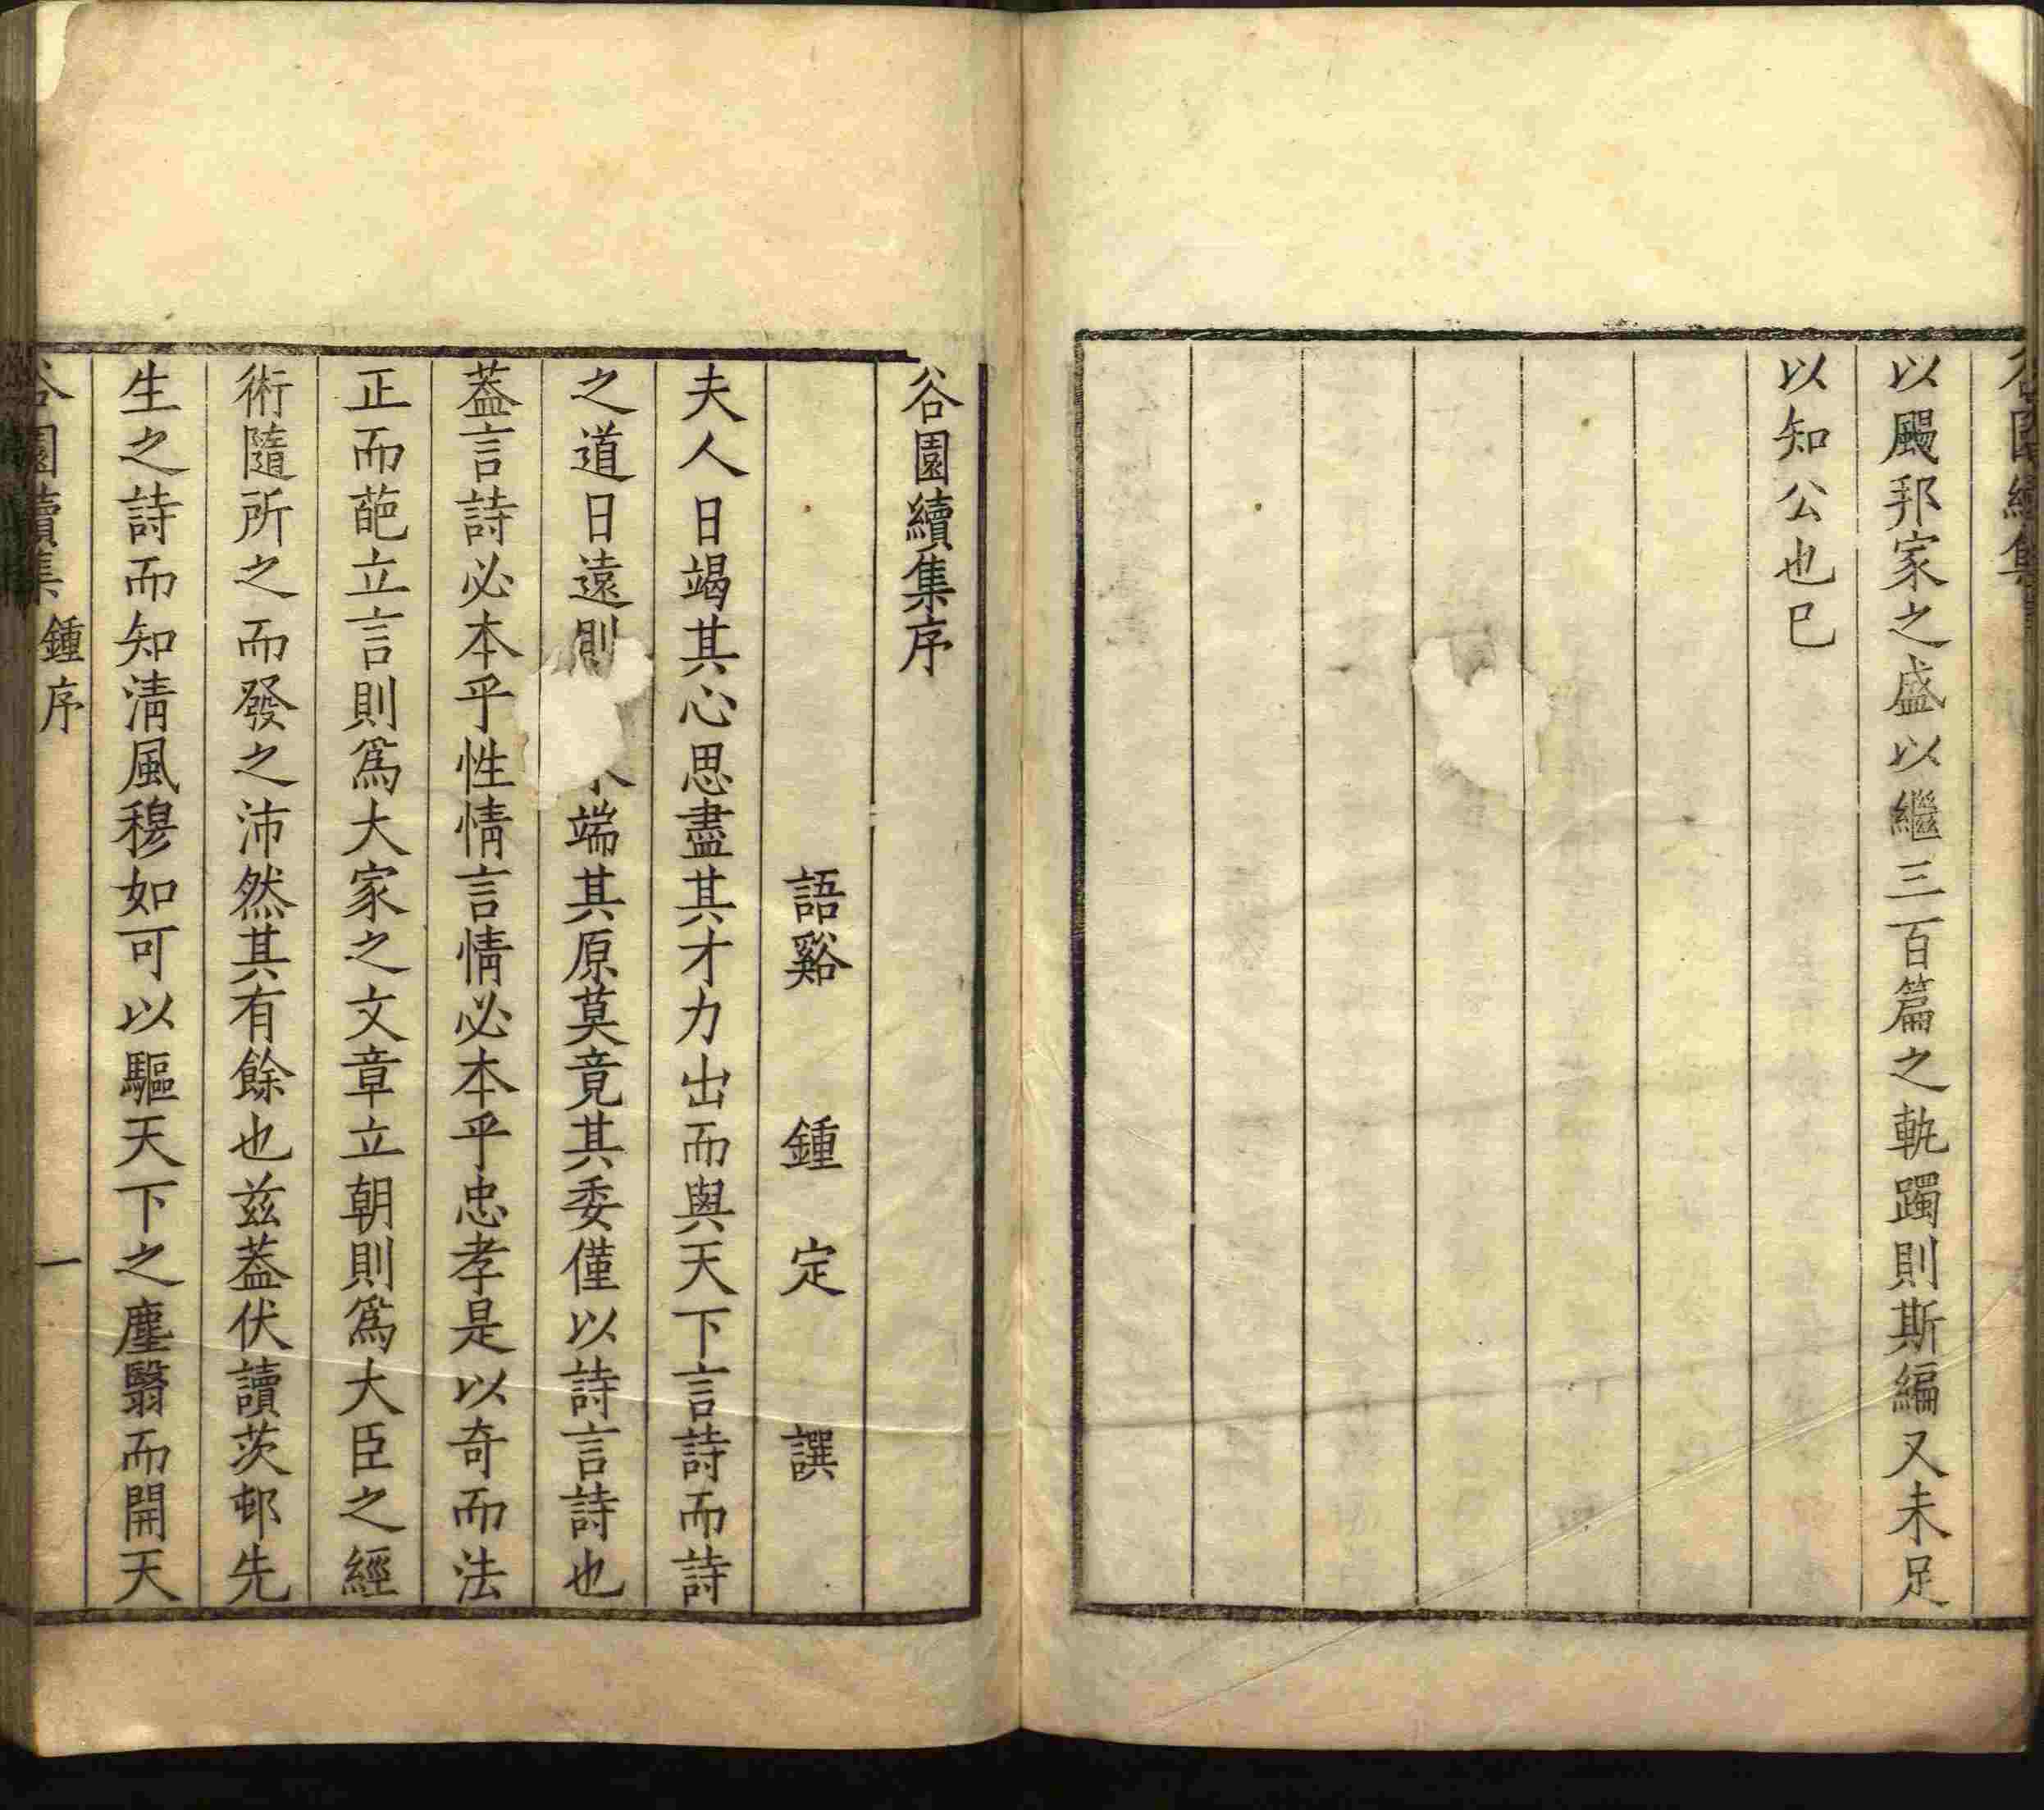 谷園續集
以颺邦家之盛以繼三百篇之軌躅則斯編又未足
以知公也巳
谷園續集序
語谿 鍾定 譔
夫人日竭其心思盡其才力出而與天下言詩而詩
之道日遠則端其原莫竟其委僅以詩言詩也
葢言詩必本乎性情言情必本乎忠孝是以奇而法
正而葩立言則爲大家之文章立朝則爲大臣之經
術隨所之而發之沛然其有餘也兹葢伏讀茨邨先
生之詩而知清風穆如可以驅天下之塵翳而開天
谷園續集 鍾序 一